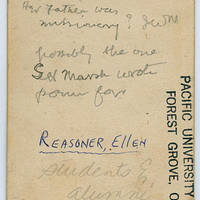 Her father was
missionary?
possibly the one
S H Marsh wrote
poem for
REASONER, ELLEN
students &
alumni
PACIFIC UNIVERSITY
FOREST GROVE, O